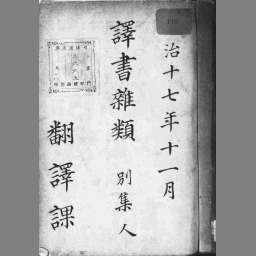 治十七年十一月
譯書雜類 別集人
翻譯課